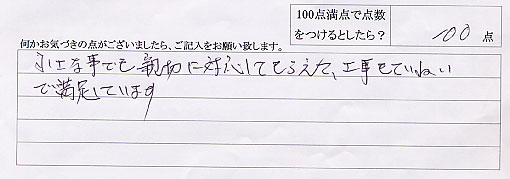 100点満点で点数
をつけるとしたら？ 100 点
何かお気づきの点がございましたら、ご記入をお願い致します。
小さな事でも親切に対応してもらえた、工事もていねい
で満足しています